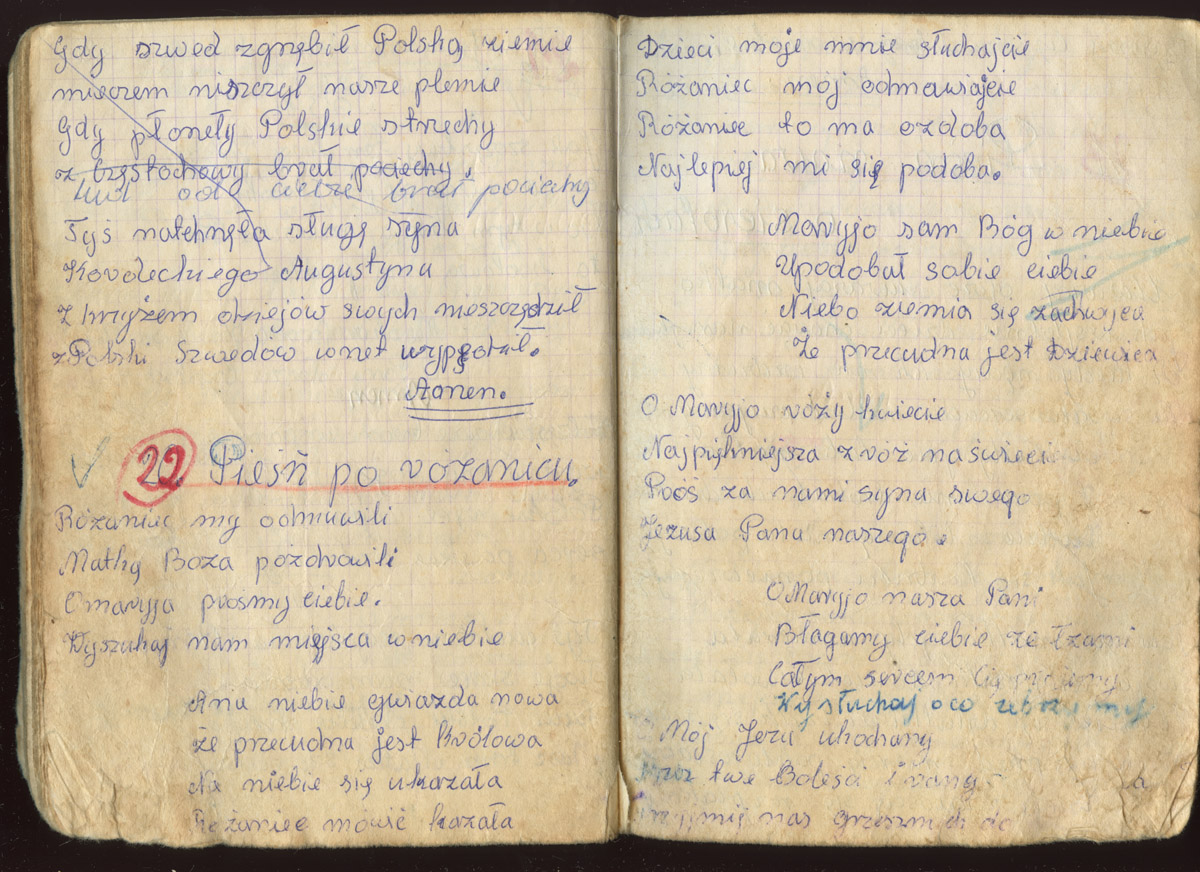 Gdy szwed zgnębił Polską ziemie
mieczem niszczył nasze plemie
Gdy płonęły Polskie strzechy
z Częstochowy brał pociechy.
Lud od ciebie brał pociechy
Tyś natchnęła sługę syna
Kordeckiego Augustyna
Z krzyżem dziejów swych nieszczędził
z Polski Szwedów wnet wypędził.
Amen.
22 Pieśń po różańcu.
Różaniec my odmuwili
Matkę Boza pozdrowili
O maryja prośmy ciebie.
Wyszukaj nam miejsca wniebie
Ana niebie gwiazda nowa
Że przecudna jest Królowa
Na niebie się ukazała
Różaniec mówić kazała
Dzieci moje mnie słuchajcie
Różaniec mój odmawiajcie
Różaniec to ma ozdoba
Najlepiej mi się podoba.
Maryjo sam Bóg w niebie
Upodobał sobie ciebie
Niebo ziemia się zachwyca
Że przecudna jest Dziewica
O Maryjo róży kwiecie
Najpiękniejsza z róż na świecie
Proś za nami syna swego
Jezusa Pana naszego.
O Maryjo nasza Pani
Błagamy ciebie ze łzami
Całym sercem Cię
Wysłuchaj o co
Mój Jezu ukochany
twe Boleści i rany
nas grzesznych do